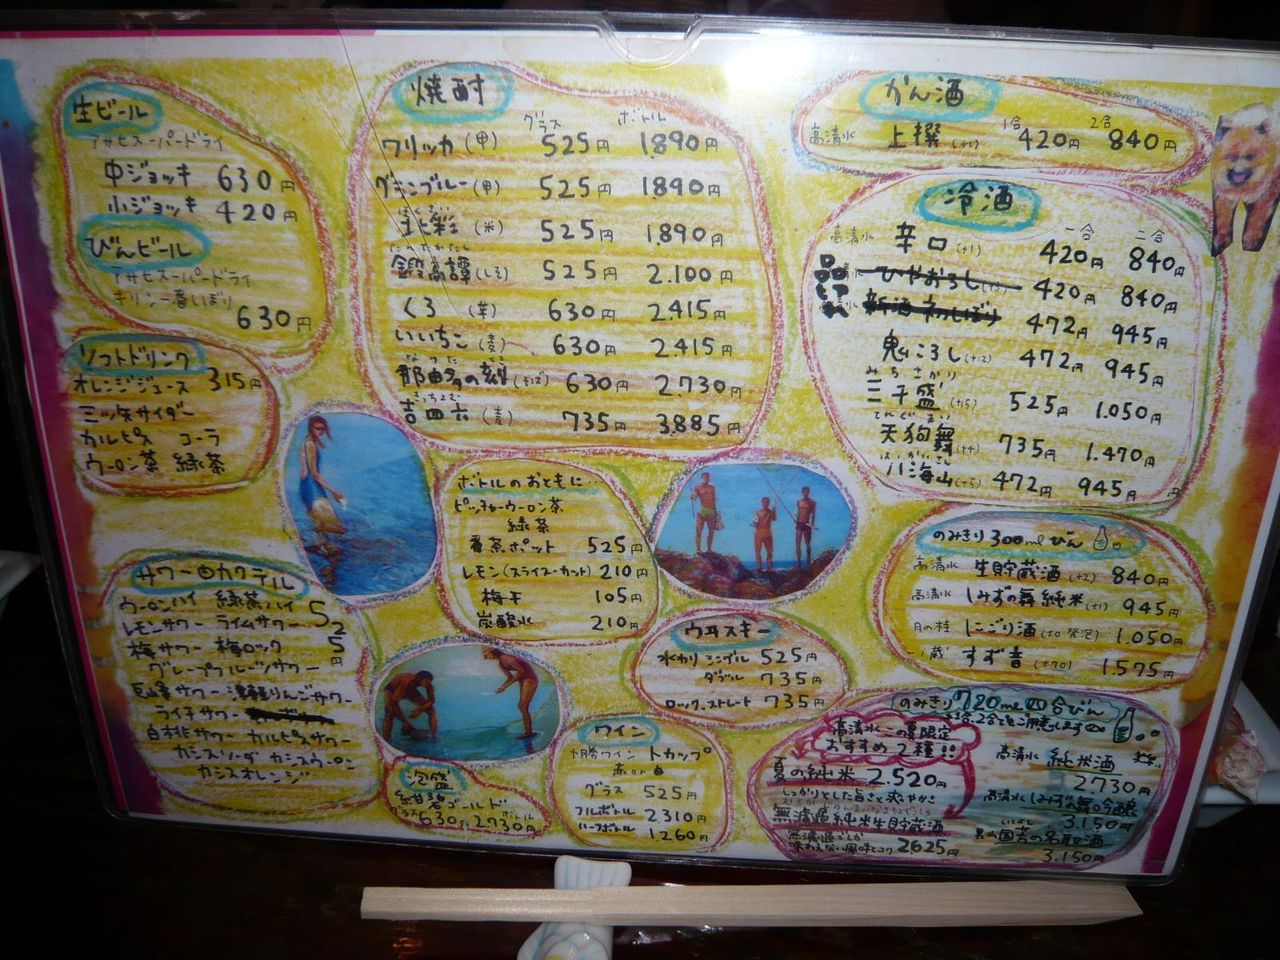 生ビール
アサヒスーパードライ
中ジョッキ 630円
小ジョッキ 420円
びんビール
アサヒスーパードライ
キリン一番しぼり
630円
ソフトドリンク
オレンジジュース 315円
三ツ矢サイダー
カルピス コーラ
ウーロン茶 緑茶
サワー カクテル
ウーロンハイ 緑茶ハイ 525円
レモンサワー ライムサワー
梅サワー 梅ロック
グレープフルーツサワー
巨峰サワー 津軽りんごサワー
ライチサワー
白桃サワー カルピスサワー
カシスソーダ カシスウーロン
カシスオレンジ
焼酎
グラス ボトル
ワリッカ(甲) 525円 1.890円
グランブルー(甲) 525円 1.890円
(米) 525円 1.890円
たんたかたん
鍛高譚(しそ) 525円 2.100円
くろ (芋) 630円 2.415円
いいちこ(麦) 630円 2.415円
なゆたのとき
那由多の刻(そば) 630円 2.730円
きっちょむ
吉四六(麦) 735円 3.885円
ボトルのおともに…
ピッチャーウーロン茶
緑茶
番茶ポット 525円
レモン(スライス・カット) 210円
梅干 105円
炭酸水 210円
泡盛
グラス 630円 2730円 ボトル
ウヰスキー
水わり シングル 525円
ダブル 735円
ロック.ストレート 735円
ワイン
十勝ワイン トカップ
赤 白
グラス 525円
フルボトル 2.310円
ハーフボトル 1.260円
かん酒
1合 2合
高清水 上撰(+1) 420円 840円
冷酒
一合 二合
高清水 辛口(+1) 420円 840円
ひやおろし 420円 840円
新酒初しぼり 472円 945円
鬼ころし(+12) 472円 945円
みちさかり
三千盛(+15) 525円 1.050円
てんぐまい
天狗舞(+4) 735円 1.470円
はっかいさん
八海山(+5) 472円 945円
のみきり300mlびん
高清水 生貯蔵酒(+2) 840円
高清水 しみずの舞 純米(+1) 945円
月の桂 にごり酒(±0 発泡) 1.050円
一ノ蔵 すず音 1.575円
のみきり720ml四合びん
1合、2合でもご用意します
高清水 この夏限定
おすすめ2種!!
夏の純米 2.520円
しっかりとした旨さと爽やかさ
無濾過純米生貯蔵酒
無濾過でしか
味わえない風味とコク 2625円
高清水 純米酒
2730円
高清水 しみずの舞 吟醸
3.150円
3.150円